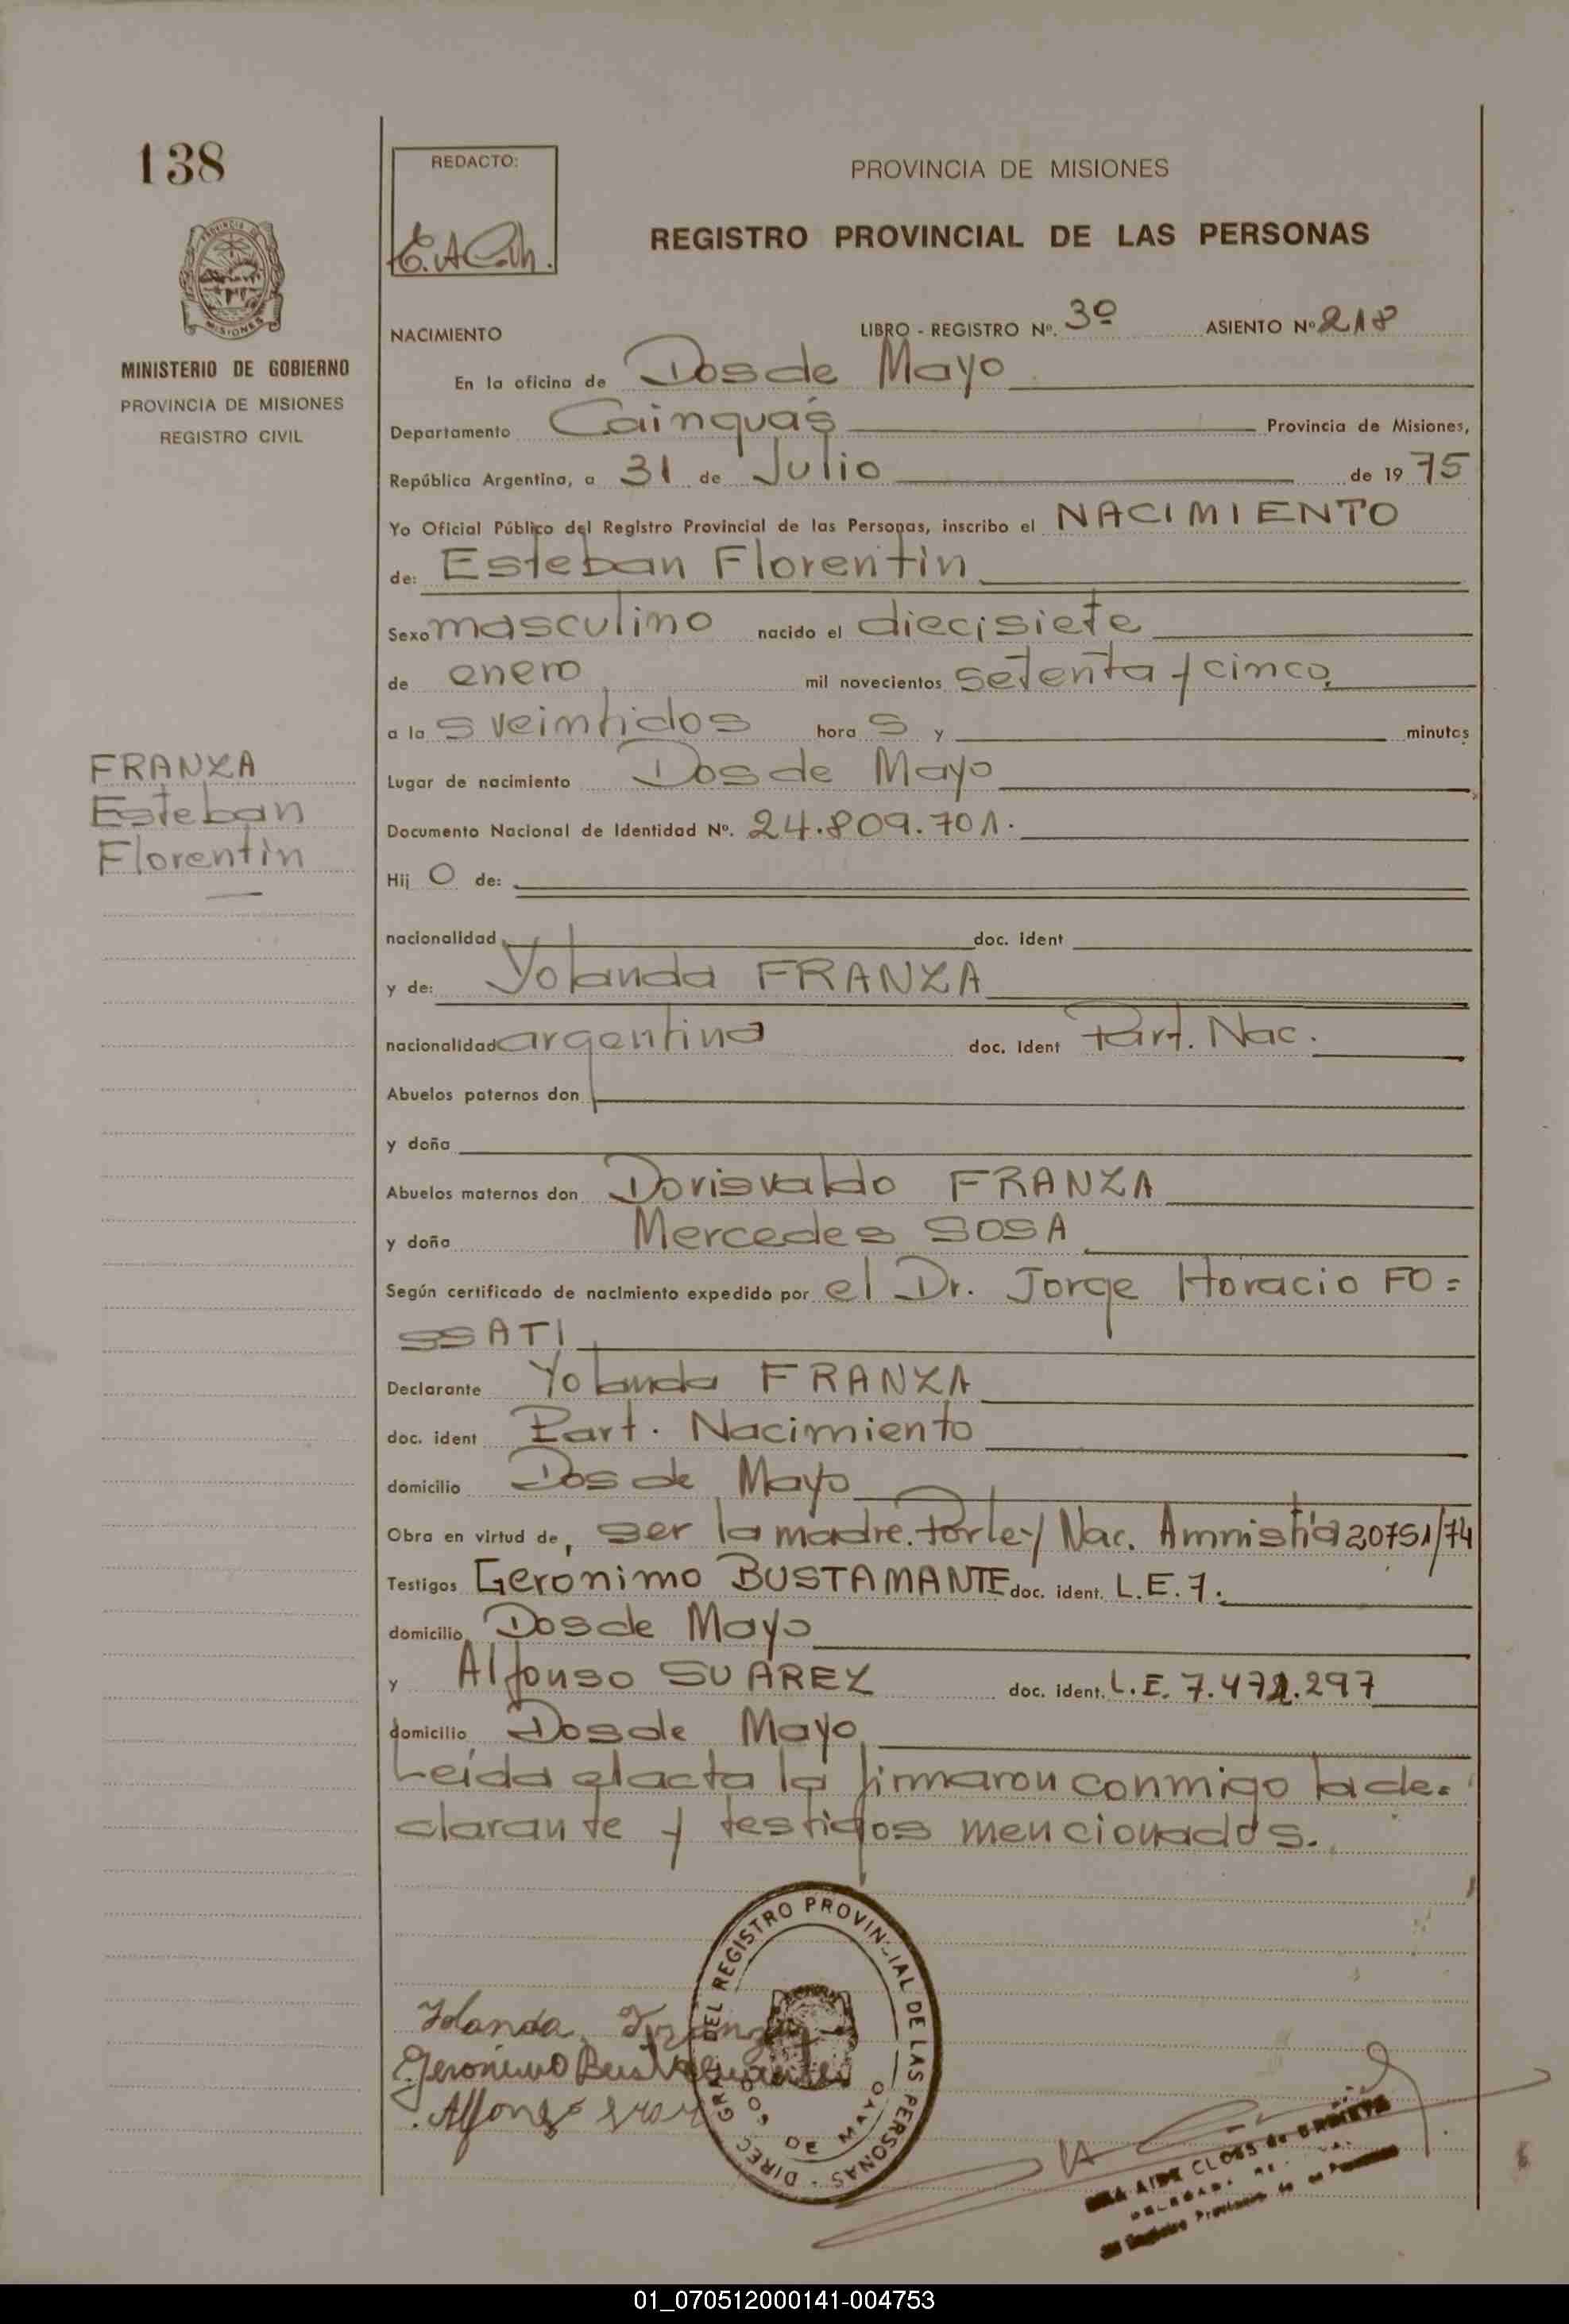 138
REDACTO:
PROVINCIA DE MISIONES
REGISTRO PROVINCIAL DE LAS PERSONAS
MINISTERIO DE GOBIERNO
PROVINCIA DE MISIONES
REGISTRO CIVIL
NACIMIENTO LIBRO - REGISTRO Nº. 3º ASIENTO Nº 218
En la oficina de Dos de Mayo
Departamento Cainguás Provincia de Misiones,
República Argentina, a 31 de Julio de 19 75
Yo Oficial Público del Registro Provincial de las Personas, inscribo el NACIMIENTO
de: Esteban Florentin
Sexo masculino nacido el diecisiete
de enero mil novecientos setenta y cinco
a la s veintidos hora s y minutos
FRANZA
Esteban
Florentin
Lugar de nacimiento Dos de Mayo
Documento Nacional de Identidad Nº. 24.809.701.
Hij o de:
nacionalidad doc. ident
y de: Yolanda FRANZA
nacionalidad argentina doc. ident Part. Nac.
Abuelos paternos don
y doña
Abuelos maternos don Dorisvaldo FRANZA
y doña Mercedes SOSA
Según certificado de nacimiento expedido por el Dr. Jorge Horacio FO=
SSATI
Declarante Yolanda FRANZA
doc. ident Part. Nacimiento
domicilio Dos de Mayo
Obra en virtud de, ser la madre. Por ley Nac. Amnistía 20751/74
Testigos Geronimo BUSTAMANTE doc. ident. L.E. 7.
domicilio Dos de Mayo
y Alfonso SUAREZ doc. ident. L.E. 7.472.297
domicilio Dos de Mayo
Leída el acta la firmaron conmigo la de=
clarante y testigos mencionados.
DIREC. GRAL. DEL REGISTRO PROVINCIAL DE LAS PERSONAS
DOS DE MAYO
Yolanda Franza
Geronimo Bustamante
Alfonso
AIDE CLOSS de
01_070512000141-004753